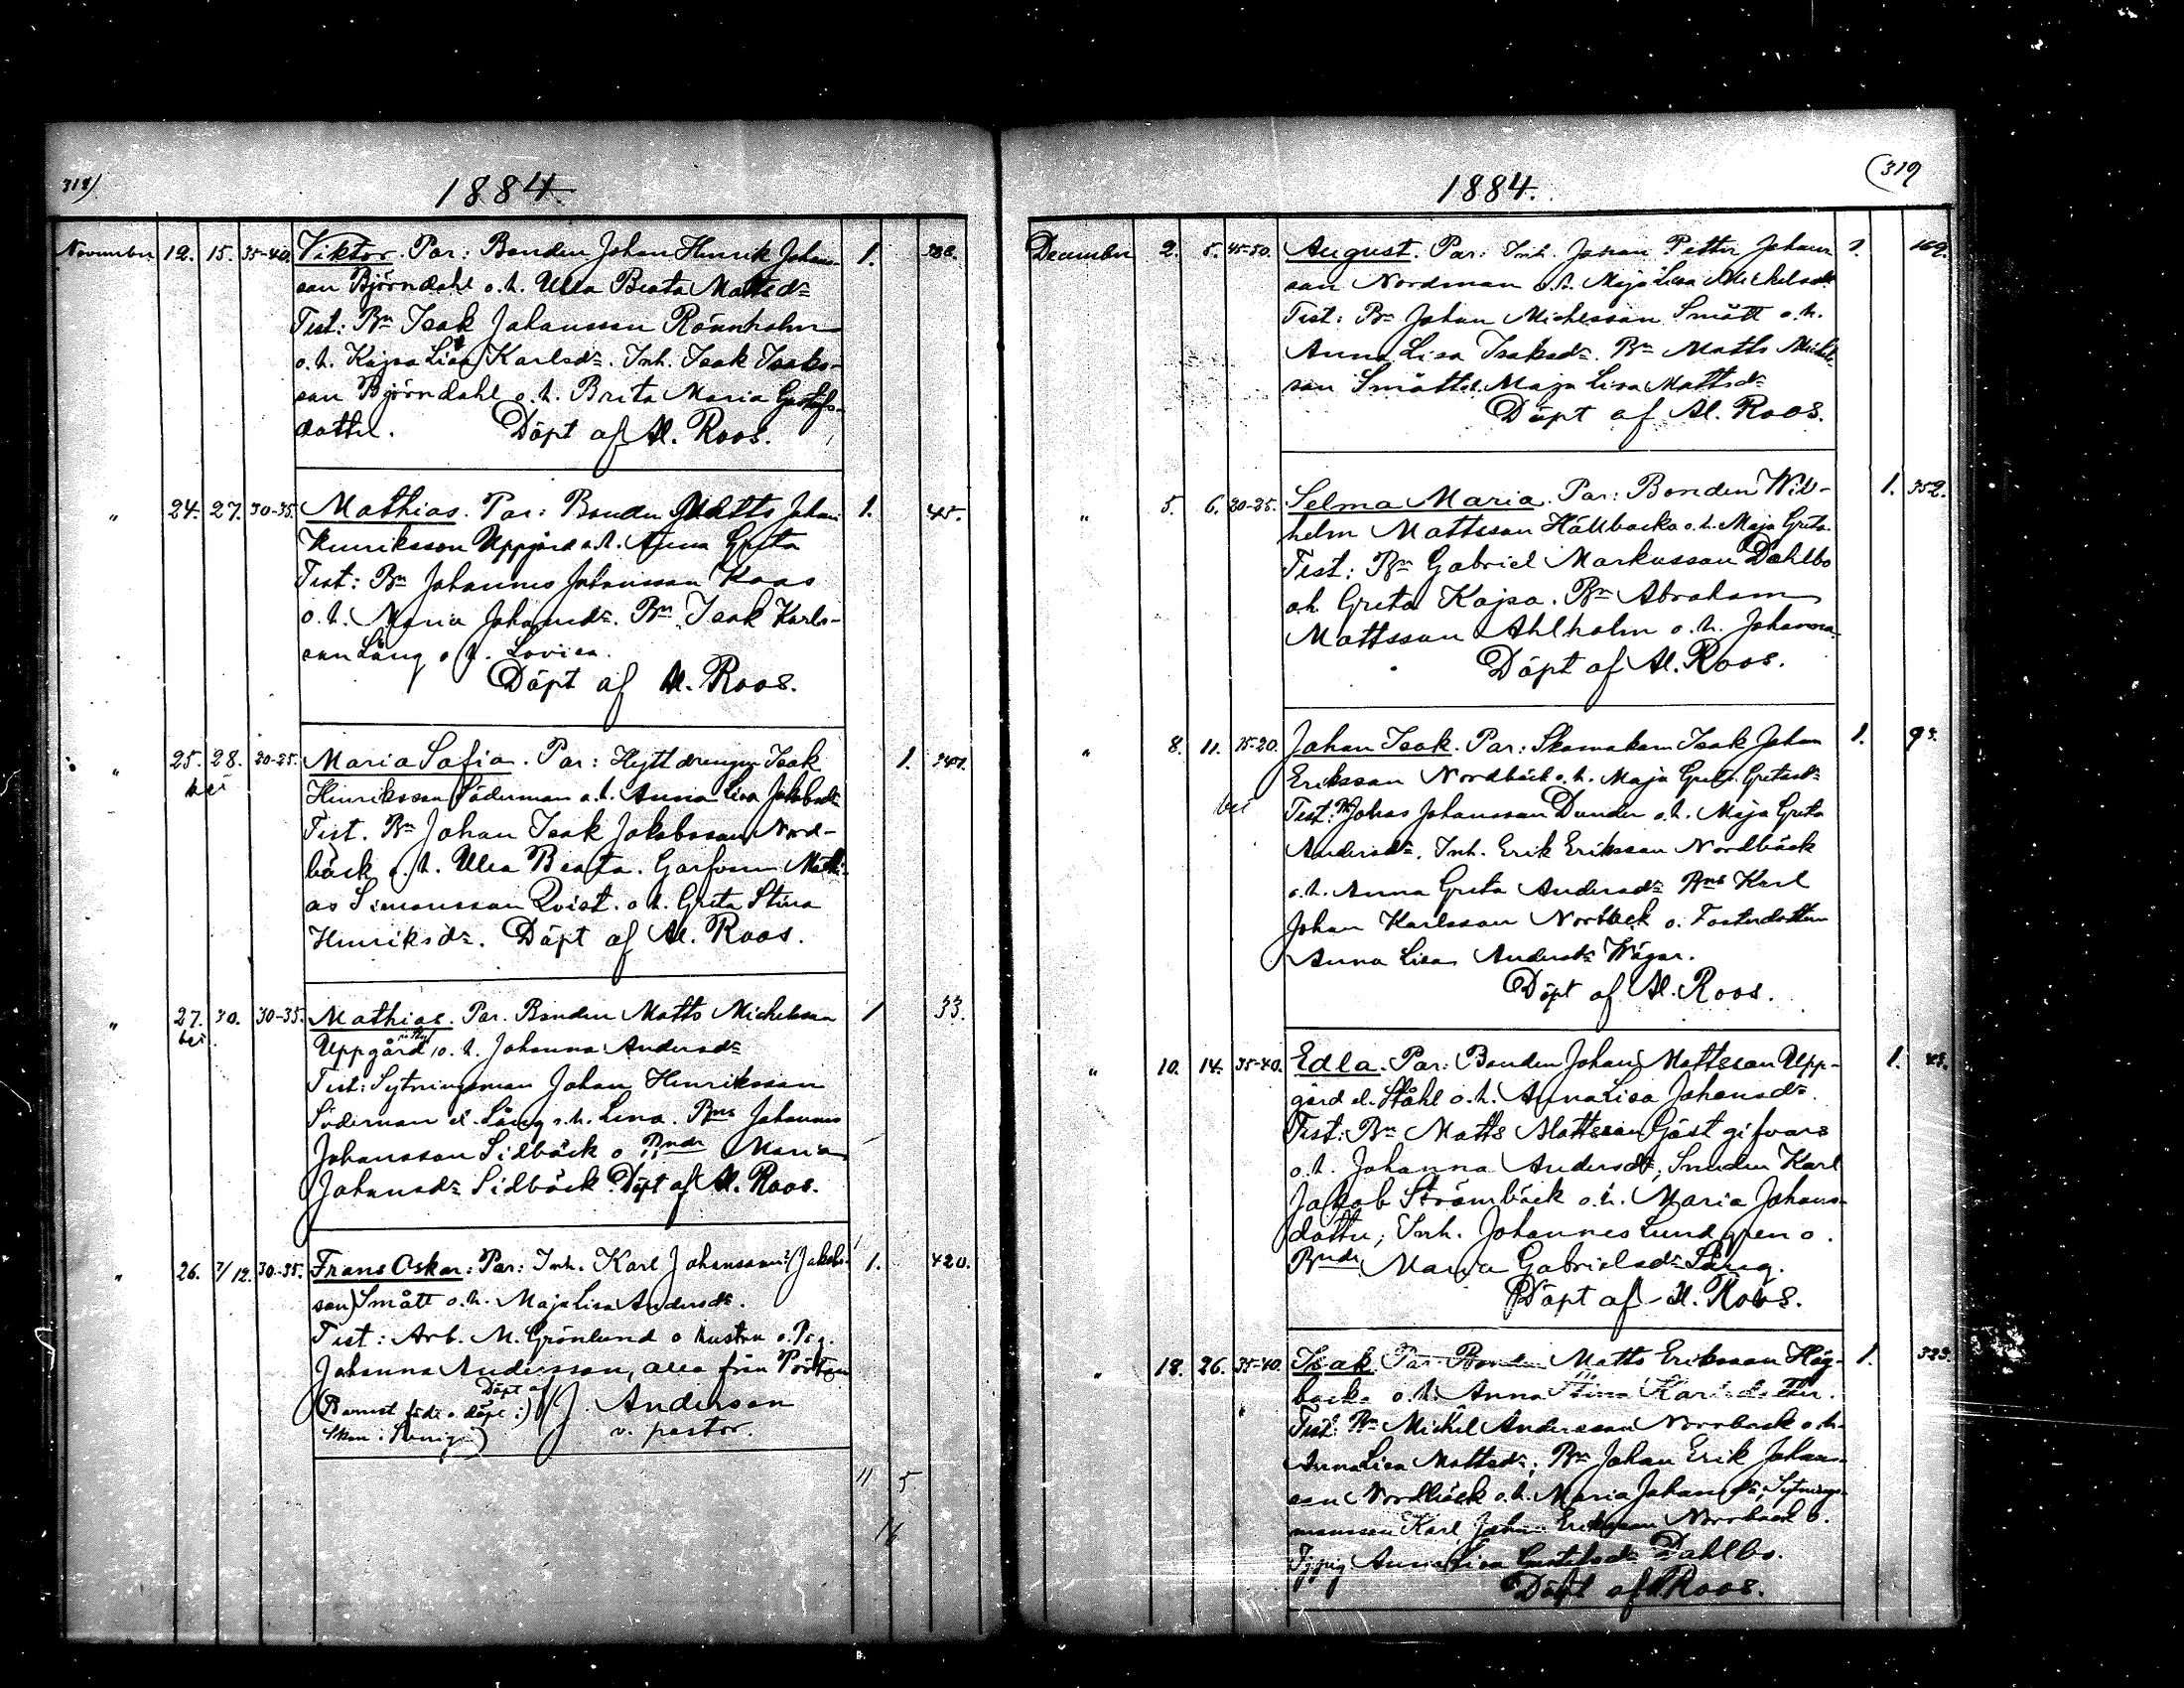 318)
1884.
November 12. 15. 35-40. Viktor. Par: Bonden Johan Henrik Johans- 1. 388.
son Björndahl o. h. Ulla Beata Mattsdr
Test: Bn Isak Johansson Rönnholm
o. h. Kajsa Lisa Karlsdr. Inh. Isak Isaks-
son Björndahl o. h. Brita Maria Gustafs-
dotter. Döpt af Al. Roos.
" 24. 27. 30-35. Mathias. Par: Bonden Matts Johan 1. 45.
Henriksson Uppgård o. h. Anna Greta
Test: Bn Johannes Johansson Kaas
o. h. Maria Johansdr. Bn Isak Karls-
son Lång o. h. Lovisa.
Döpt af Al. Roos.
" 25. 28. 20-25. Maria Sofia. Par: Hyttdrengen Isak 1.
Henriksson Söderman o. h. Anna Lisa Jakobsdr
Test. Bn Johan Isak Jakobsson Nord-
bäck o. h. Ulla Beata. Garfvaren Mathi-
as Simonsson Qvist. o. h. Greta Stina
Henriksdr. Döpt af Al. Roos.
" 27. 30. 30-35. Mathias. Par. Bonden Matts Michelsson 1 33.
Uppgård o. h. Johanna Andersdr
Test: Sytningsman Johan Henriksson
Söderman el. Lång o. h. Lena. Bns Johannes
Johansson Sidbäck o Bndr Maria
Johansdr Sidbäck. Döpt af Al. Roos.
" 26. 7/12. 30-35. Frans Oskar: Par: Inh. Karl Johansson? (Jakobs- 1. 420.
son) Smått o. h. Maja Lisa Andersdr.
Test: Arb. M. Grönlund o hustru o. Pig.
Johanna Andersson, alla från
(Barnet född o. döpt i Döpt af J. Anderson
Sken i Sverige) v. pastor.
11 5
16
(319
1884.
December 2. 5. 45-50. August. Par: Inh. Johan Petter Johans- 1. 169.
son Nordman o. h. Maja Lisa Michelsdr
Test: Bn Johan Michelsson Smått o. h.
Anna Lisa Isaksdr. Bn Matts Michels-
son Smått o. h. Maja Lisa Mattsdr
Döpt af Al. Roos.
" 5. 6. 20-25. Selma Maria. Par: Bonden Wil- 1. 352.
helm Mattsson Hällbacka o. h. Maja Greta.
Test: Bn Gabriel Markusson Dahlbo
oh Greta Kajsa. Bn Abraham
Mattsson Ahlholm o. h. Johanna.
Döpt af Al. Roos.
" 8. 11. 15-20. Johan Isak. Par: Skomakarn Isak Johan 1. 93.
Eriksson Nordbäck o. h. Maja Greta Gretasdr
Test: Bn Johas Johansson Dunder o. h. Maja Greta
Andersdr. Inh. Erik Eriksson Nordbäck
o. h. Anna Greta Andersdr Bns Karl
Johan Karlsson Norrbäck o. Fosterdottern
Anna Lisa Andersdr Wägar.
Döpt af Al. Roos.
" 10. 14. 35-40. Edla. Par: Bonden Johan Mattsson Upp- 1. 43.
gård el. Ståhl o. h. Anna Lisa Johansdr.
Test: Bn Matts Mattsson Gästgifvars
o. h. Johanna Andersdr; Smeden Karl
Jakob Strömbäck o. h. Maria Johans-
dotter; Inh. Johannes Lundgren o.
Bndr Maria Gabrielsdr Lång.
Döpt af Al. Roos.
" 18. 26. 35-40. Isak Par Bonden Matts Eriksson Hög- 1. 323.
backa o. h. Anna Stina Karlsdotter.
Test: Bn Mickel Andersson Norrback o. h.
Anna Lisa Mattsdr; Bn Johan Erik Johans-
son Nordbäck o. h. Maria Johansdr; Sytnings-
mansson Karl Johan Eriksson Norrback o.
Anna Lisa Gustafsdr Dahlbo.
Döpt af Roos.